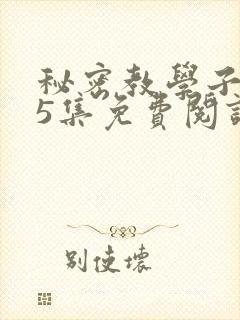 秘密教學子
5集免費閱
別使壞